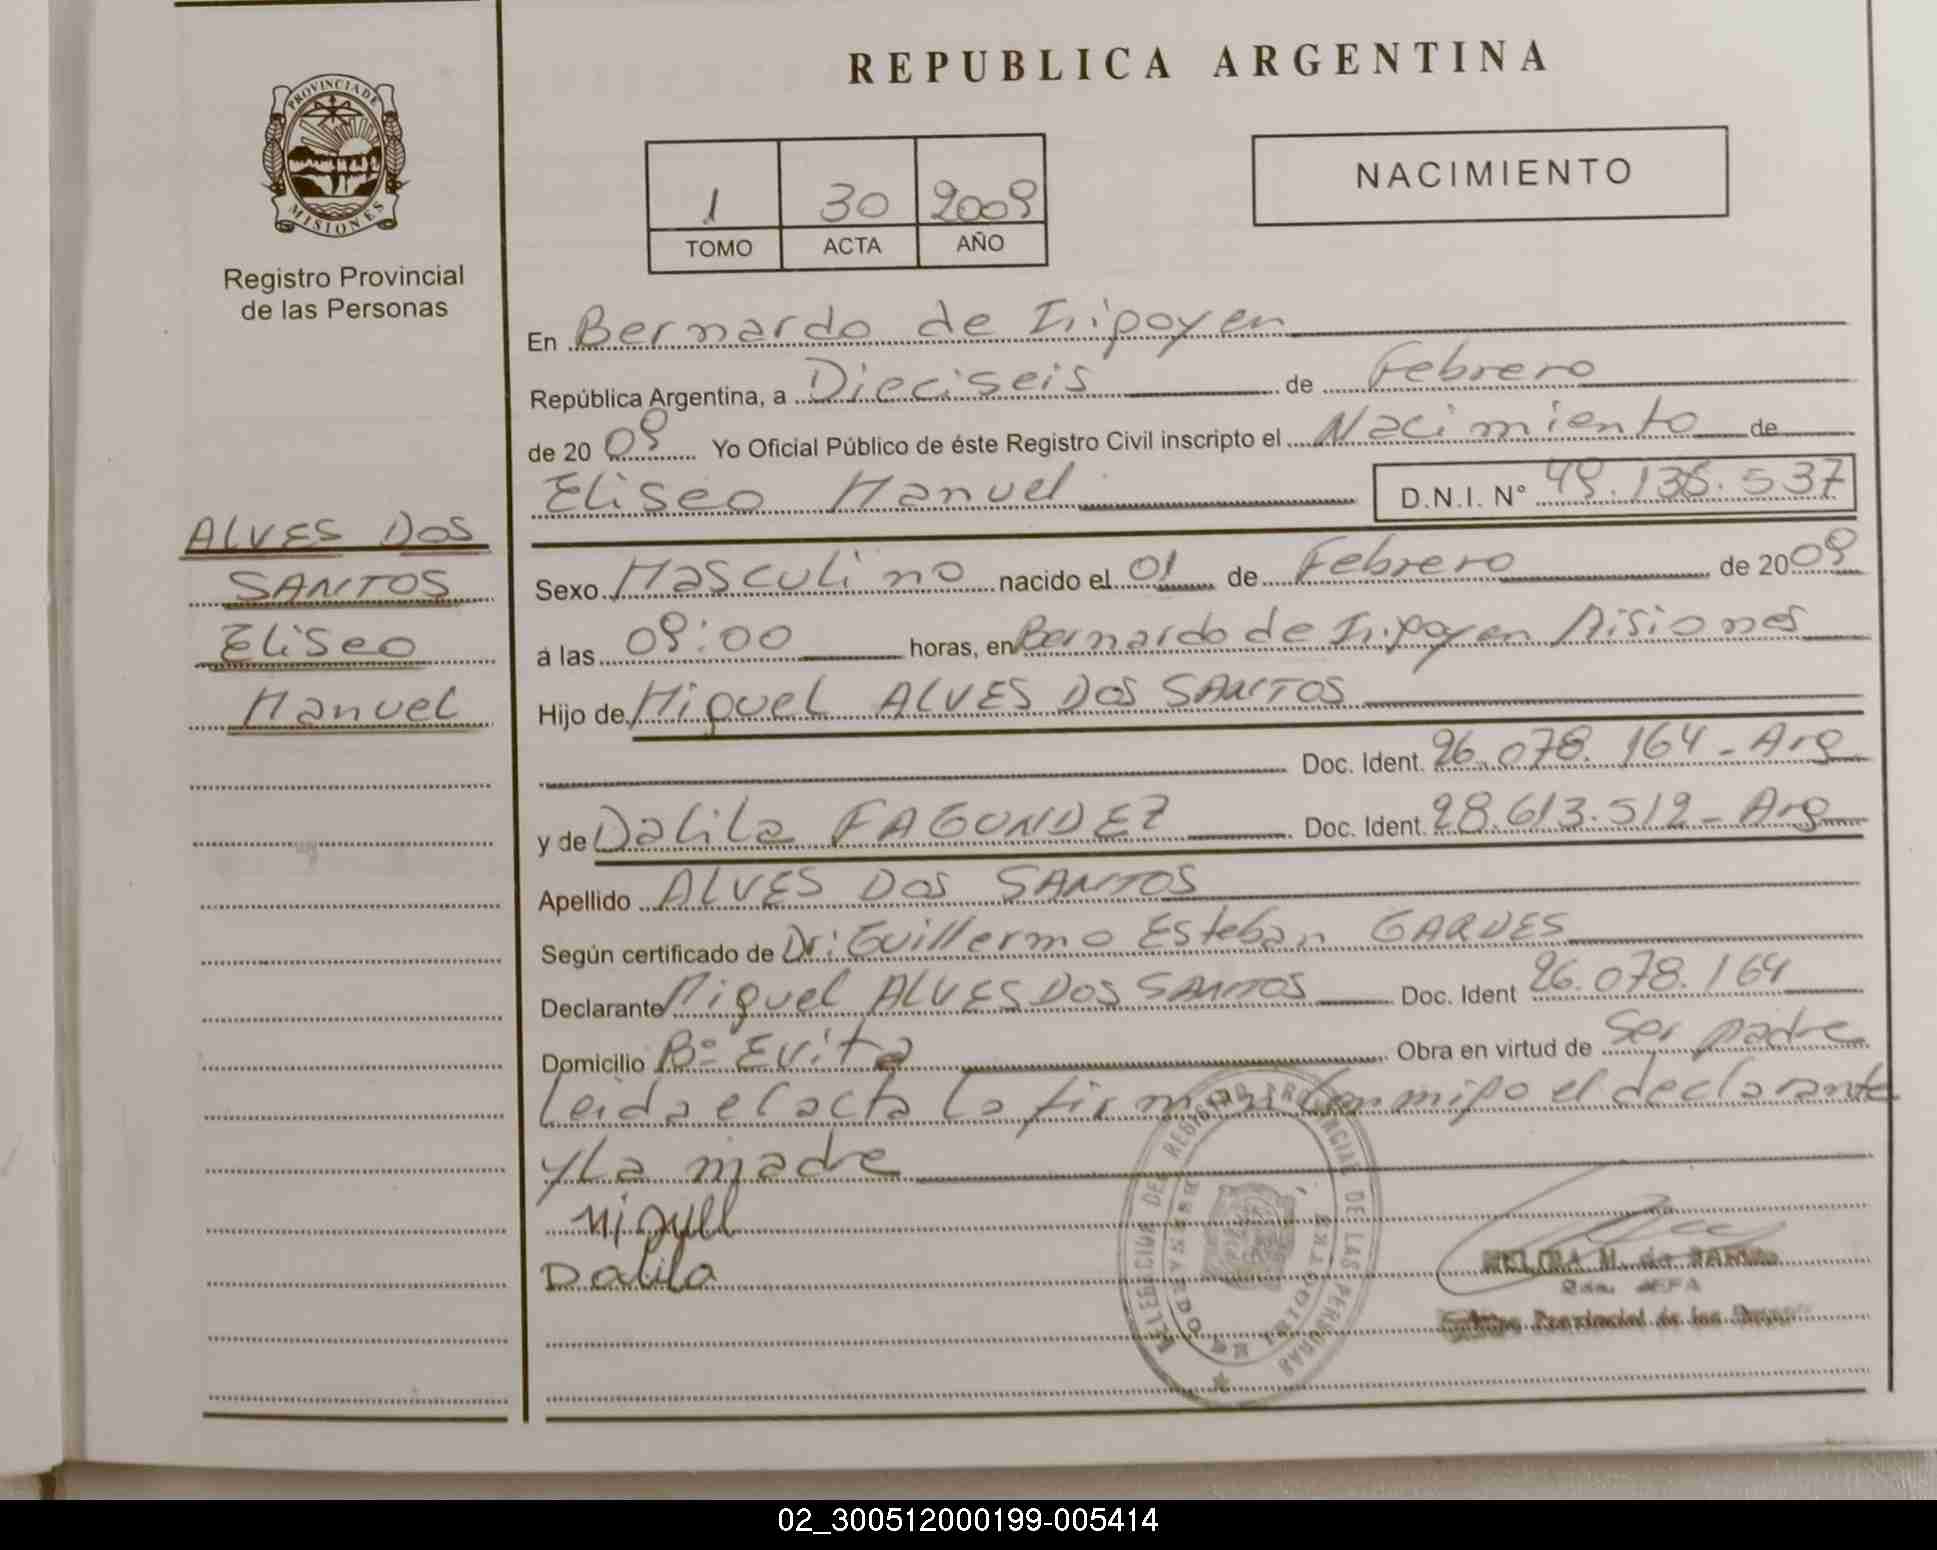 PROVINCIA DE
MISIONES
Registro Provincial
de las Personas
ALVES DOS
SANTOS
Eliseo
Manuel
REPUBLICA ARGENTINA
1 30 2009
TOMO ACTA AÑO
NACIMIENTO
En Bernardo de Irigoyen
República Argentina, a Dieciseis de Febrero
de 20 09 Yo Oficial Público de éste Registro Civil inscripto el Nacimiento de
Eliseo Manuel D.N.I. N° 49.136.537
Sexo Masculino nacido el 01 de Febrero de 2009
á las 09:00 horas, en Bernardo de Irigoyen Misiones
Hijo de Miguel ALVES DOS SANTOS
Doc. Ident. 26.078.164 - Arg
y de Dalila FAGUNDEZ Doc. Ident. 28.613.512 - Arg
Apellido ALVES DOS SANTOS
Según certificado de Dr: Guillermo Esteban
Declarante Miguel ALVES DOS SANTOS Doc. Ident 26.078.164
Domicilio B° Evita Obra en virtud de Ser padre
Leida el acta la firman conmigo el declarante
y La madre
Miguel
Dalila
DELEGACION DEL REGISTRO PROVINCIAL DE LAS PERSONAS
Provincial de las
02_300512000199-005414